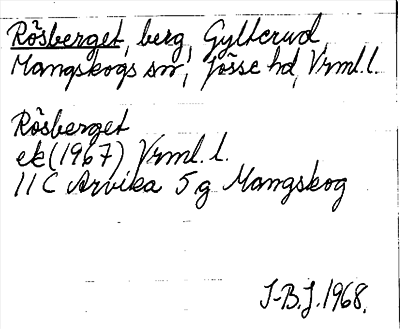 Rösberget, berg, Gylterud,
Mangskogs sn, Jösse hd, Vrml. l.
Rösberget
ek (1967) Vrml. l.
11 C Arvika 5 g Mangskog
I-B.J. 1968.